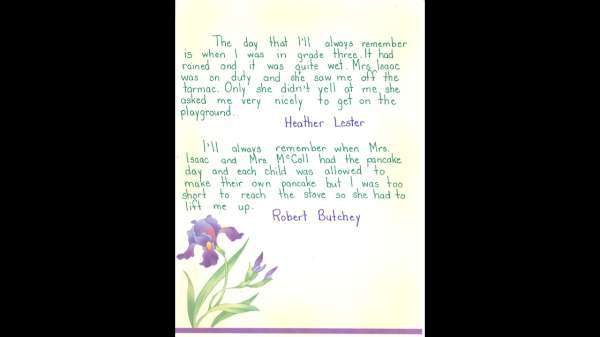 The day that I'll always remember
is when I was in grade three. It had
rained and it was quite wet. Mrs. Isaac
was on duty and she saw me off the
tarmac. Only she didn't yell at me, she
asked me very nicely to get on the
playground.
Heather Lester
I'll always remember when Mrs.
Isaac and Mrs. McColl had the pancake
day and each child was allowed to
make their own pancake but I was too
short to reach the stove so she had to
lift me up.
Robert Butchey